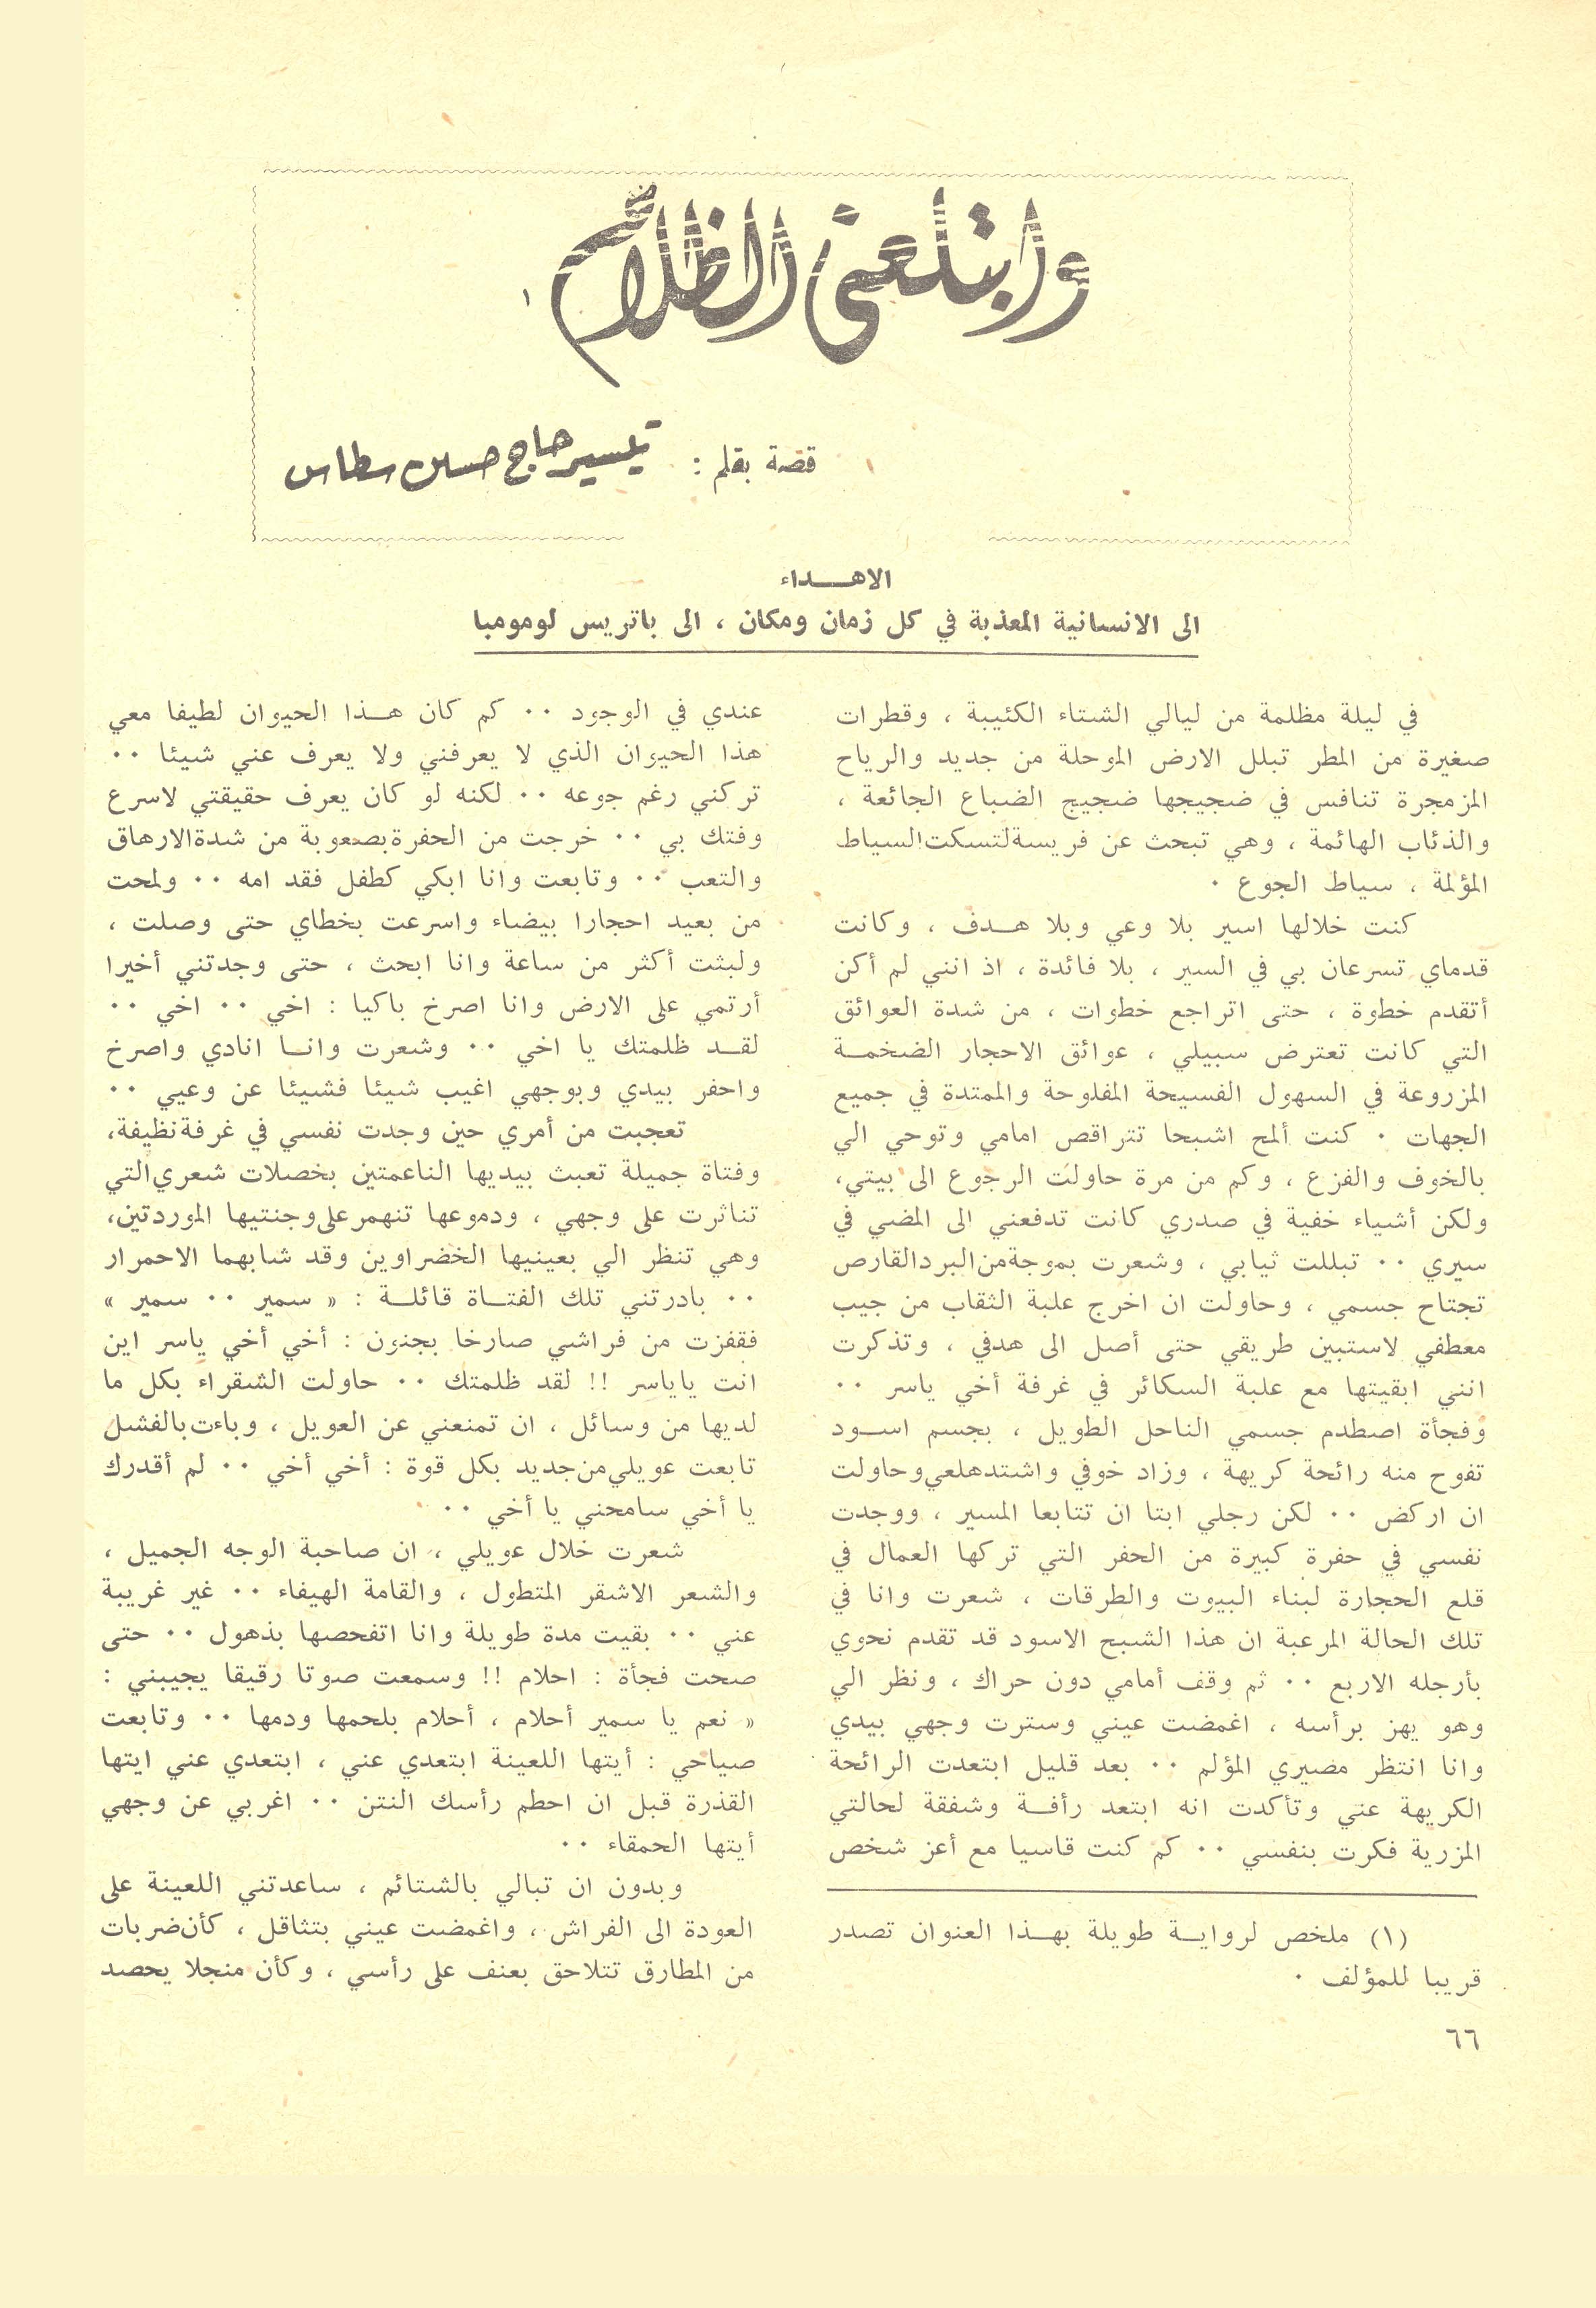 وابتلعني الظلام ١
قصة بقلم : تيسير حاج حسين سطاس
الاهـــداء
الى الانسانية المعذبة في كل زمان ومكان ، الى باتريس لومومبا
في ليلة مظلمة من ليالي الشتاء الكئيبة ، وقطرات
صغيرة من المطر تبلل الارض الموحلة من جديد والرياح
المزمجرة تنافس في ضجيجها ضجيج الضباع الجائعة ،
والذئاب الهائمة ، وهي تبحث عن فريسة لتسكت السياط
المؤلمة ، سياط الجوع ٠
كنت خلالها اسير بلا وعي وبلا هـدف ، وكانت
قدماي تسرعان بي في السير ، بلا فائدة ، اذ انني لم أكن
أتقدم خطوة ، حتى اتراجع خطوات ، من شدة العوائق
التي كانت تعترض سبيلي ، عوائق الاحجار الضخمـة
المزروعة في السهول الفسيحة المفلوحة والممتدة في جميع
الجهات ٠ كنت ألمح اشبحا تتراقص امامي وتوحي الي
بالخوف والفزع ، وكم من مرة حاولت الرجوع الى بيتي،
ولكن أشياء خفية في صدري كانت تدفعني الى المضي في
سيري ٠٠ تبللت ثيابي ، وشعرت بموجة من البرد القارص
تجتاح جسمي ، وحاولت ان اخرج علبة الثقاب من جيب
معطفي لاستبين طريقي حتى أصل الى هدفي ، وتذكرت
انني ابقيتها مع علبة السكائر في غرفة أخي ياسر ٠٠
وفجأة اصطدم جسمي الناحل الطويل ، بجسم اسـود
تفوح منه رائحة كريهة ، وزاد خوفي واشتد هلعي وحاولت
ان اركض ٠٠ لكن رجلي ابتا ان تتابعا المسير ، ووجدت
نفسي في حفرة كبيرة من الحفر التي تركها العمال في
قلع الحجارة لبناء البيوت والطرقات ، شعرت وانا في
تلك الحالة المرعبة ان هذا الشبح الاسود قد تقدم نحوي
بأرجله الاربع ٠٠ ثم وقف أمامي دون حراك ، ونظر الي
وهو يهز برأسه ، اغمضت عيني وسترت وجهي بيدي
وانا انتظر مصيري المؤلم ٠٠ بعد قليل ابتعدت الرائحة
الكريهة عني وتأكدت انه ابتعد رأفـة وشفقة لحالتي
المزرية فكرت بنفسي ٠٠ كم كنت قاسيا مع أعز شخص
(١) ملخص لروايـة طويلة بهـذا العنوان تصدر
قريبا للمؤلف ٠
عندي في الوجود ٠٠ كم كان هـذا الحيوان لطيفا معي
هذا الحيوان الذي لا يعرفني ولا يعرف عني شيئا ٠٠
تركني رغم جوعه ٠٠ لكنه لو كان يعرف حقيقتي لاسرع
وفتك بي ٠٠ خرجت من الحفرة بصعوبة من شدة الارهاق
والتعب ٠٠ وتابعت وانا ابكي كطفل فقد امه ٠٠ ولمحت
من بعيد احجارا بيضاء واسرعت بخطاي حتى وصلت ،
ولبثت أكثر من ساعة وانا ابحث ، حتى وجدتني أخيرا
أرتمي على الارض وانا اصرخ باكيا : اخي ٠٠ اخي ٠٠
لقـد ظلمتك يا اخي ٠٠ وشعرت وانـا انادي واصرخ
واحفر بيدي وبوجهي اغيب شيئا فشيئا عن وعيي ٠٠
تعجبت من أمري حين وجدت نفسي في غرفة نظيفة،
وفتاة جميلة تعبث بيديها الناعمتين بخصلات شعري التي
تناثرت على وجهي ، ودموعها تنهمر على وجنتيها الموردتين،
وهي تنظر الي بعينيها الخضراوين وقد شابهما الاحمرار
٠٠ بادرتني تلك الفتـاة قائلـة : « سمير ٠٠ سمير »
فقفزت من فراشي صارخا بجنون : أخي أخي ياسر اين
انت ياياسر !! لقد ظلمتك ٠٠ حاولت الشقراء بكل ما
لديها من وسائل ، ان تمنعني عن العويل ، وباءت بالفشل
تابعت عويلي من جديد بكل قوة : أخي أخي ٠٠ لم أقدرك
يا أخي سامحني يا أخي ٠٠
شعرت خلال عويلي ، ان صاحبة الوجه الجميل ،
والشعر الاشقر المتطول ، والقامة الهيفاء ٠٠ غير غريبة
عني ٠٠ بقيت مدة طويلة وانا اتفحصها بذهول ٠٠ حتى
صحت فجأة : احلام !! وسمعت صوتا رقيقا يجيبني :
« نعم يا سمير أحلام ، أحلام بلحمها ودمها ٠٠ وتابعت
صياحي : أيتها اللعينة ابتعدي عني ، ابتعدي عني ايتها
القذرة قبل ان احطم رأسك النتن ٠٠ اغربي عن وجهي
أيتها الحمقاء ٠٠
وبدون ان تبالي بالشتائم ، ساعدتني اللعينة على
العودة الى الفراش ، واغمضت عيني بتثاقل ، كأن ضربات
من المطارق تتلاحق بعنف على رأسي ، وكأن منجلا يحصد
٦٦